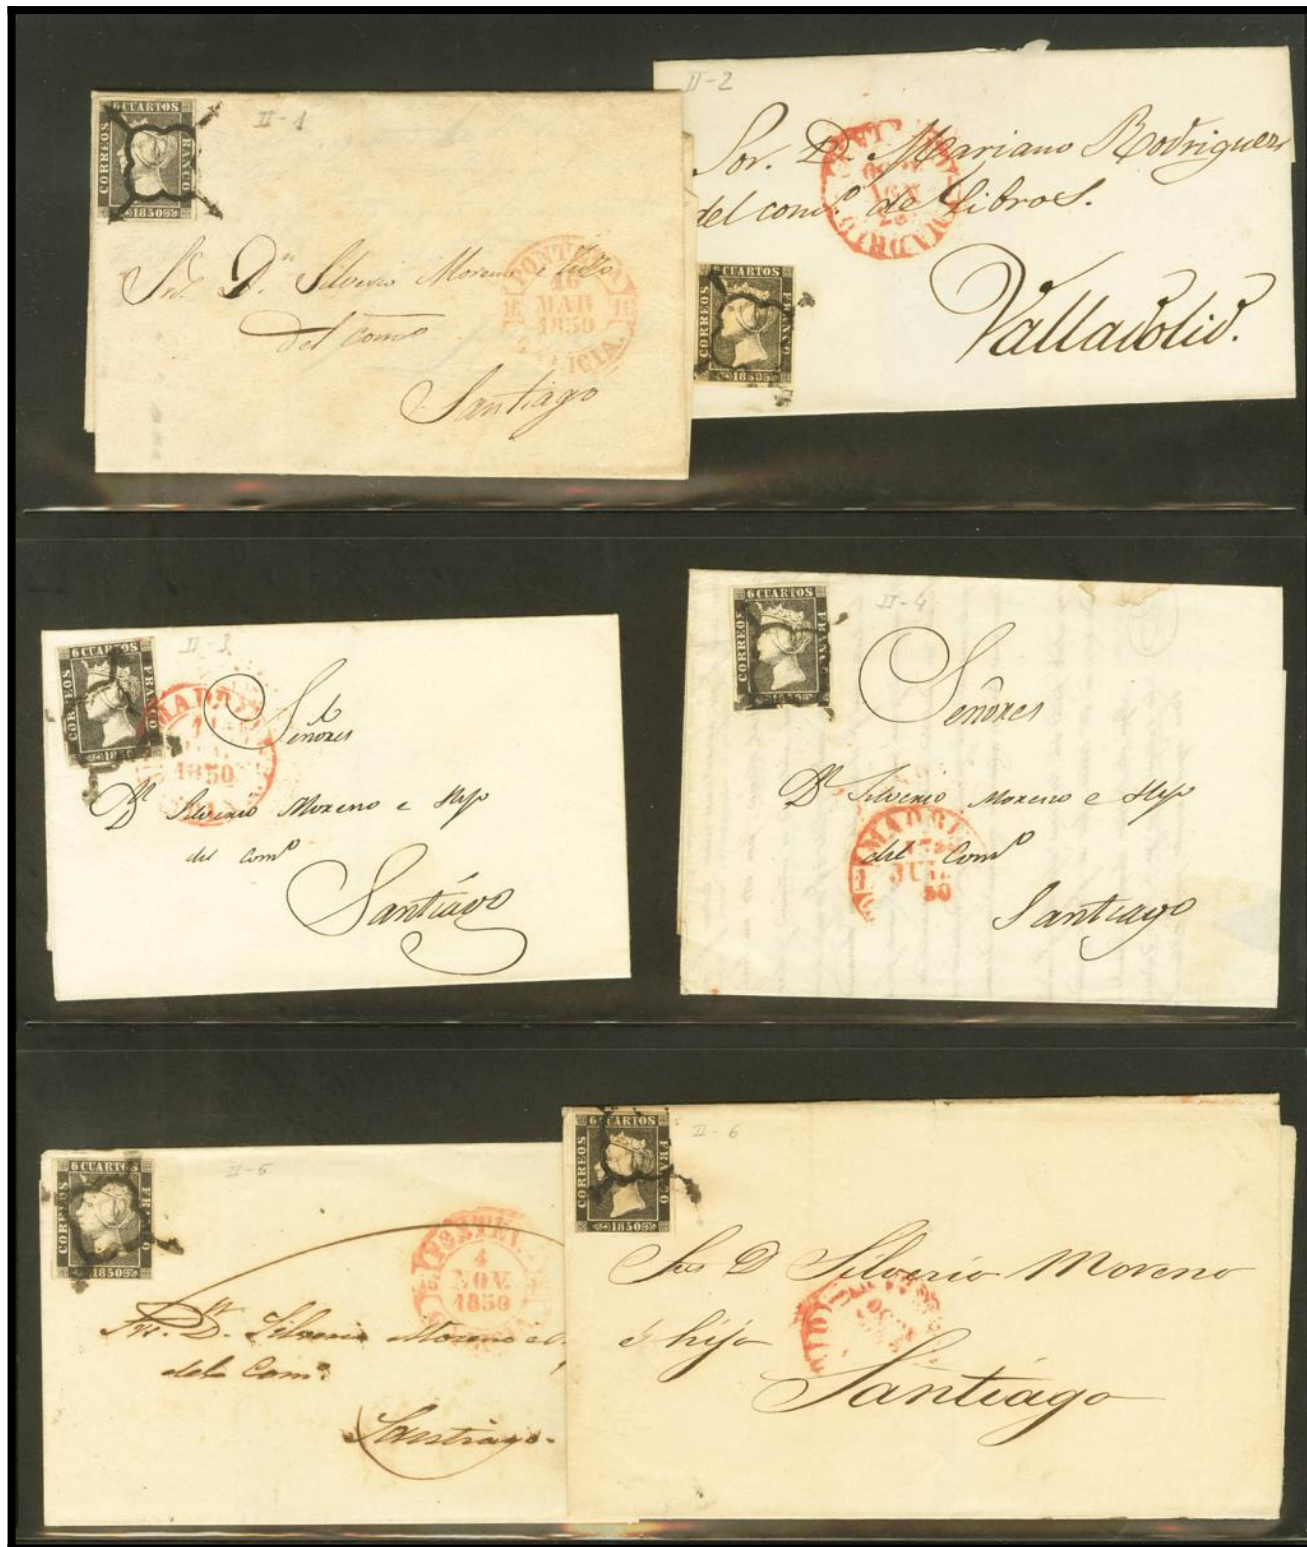 6 CUARTOS
CORREOS
FRANCO
1850
II-1
Sres. Dn. Silverio Moreno e hijo
del Como
Santiago
16
MAR
1850
II-2
Sor. D. Mariano Rodriguez
del como. de Libros.
Valladolid.
MADRID
CUARTOS
CORREOS
FRANCO
1850
II-3
6 CUARTOS
CORREOS
FRANCO
MADRID
1850
Señores
Dn Silverio Moreno e Hijo
del Como
Santiago
II-4
6 CUARTOS
CORREOS
Señores
Dn Silverio Moreno e Hijo
del Como
Santiago
MADRID
JUL
50
II-5
6 CUARTOS
CORREOS
FRANCO
1850
4
NOV.
1850
Sres. Dn. Silverio Moreno e
del Como.
Santiago.
II-6
6 CUARTOS
CORREOS
FRANCO
1850
Sres D Silverio Moreno
é hijo
Santiago